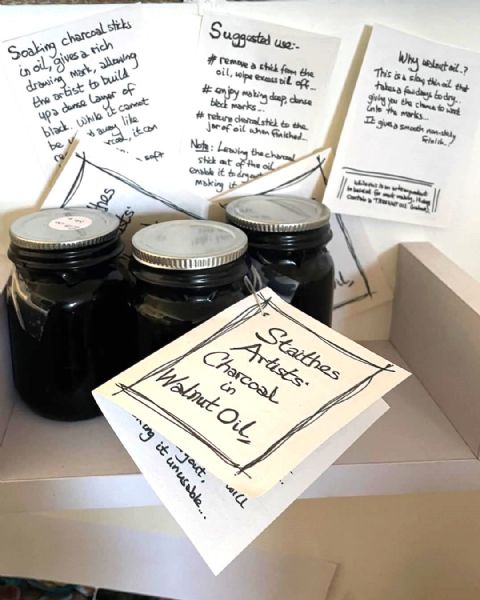 Soaking charcoal sticks
in oil, gives a rich
drawing mark, allowing
the artist to build
up a dense layer of
black. While it cannot
be away like
it can
soft
Suggested use:-
# remove a stick from the
oil, wipe excess oil off...
# enjoy making deep, dense
black marks...
# return charcoal stick to the
jar of oil when finished...
Note: Leaving the charcoal
stick out of the oil
enable it to dry out
making it
Why walnut oil..?
This is a slow thin oil that
takes a few days to dry...
giving you the chance to work
into the marks...
It gives a smooth non-sticky
finish..!
While this is an
contain a
Artists'
Oil,
Staithes
Artists'
Charcoal
in
Walnut Oil,
out,
will
it unusable...